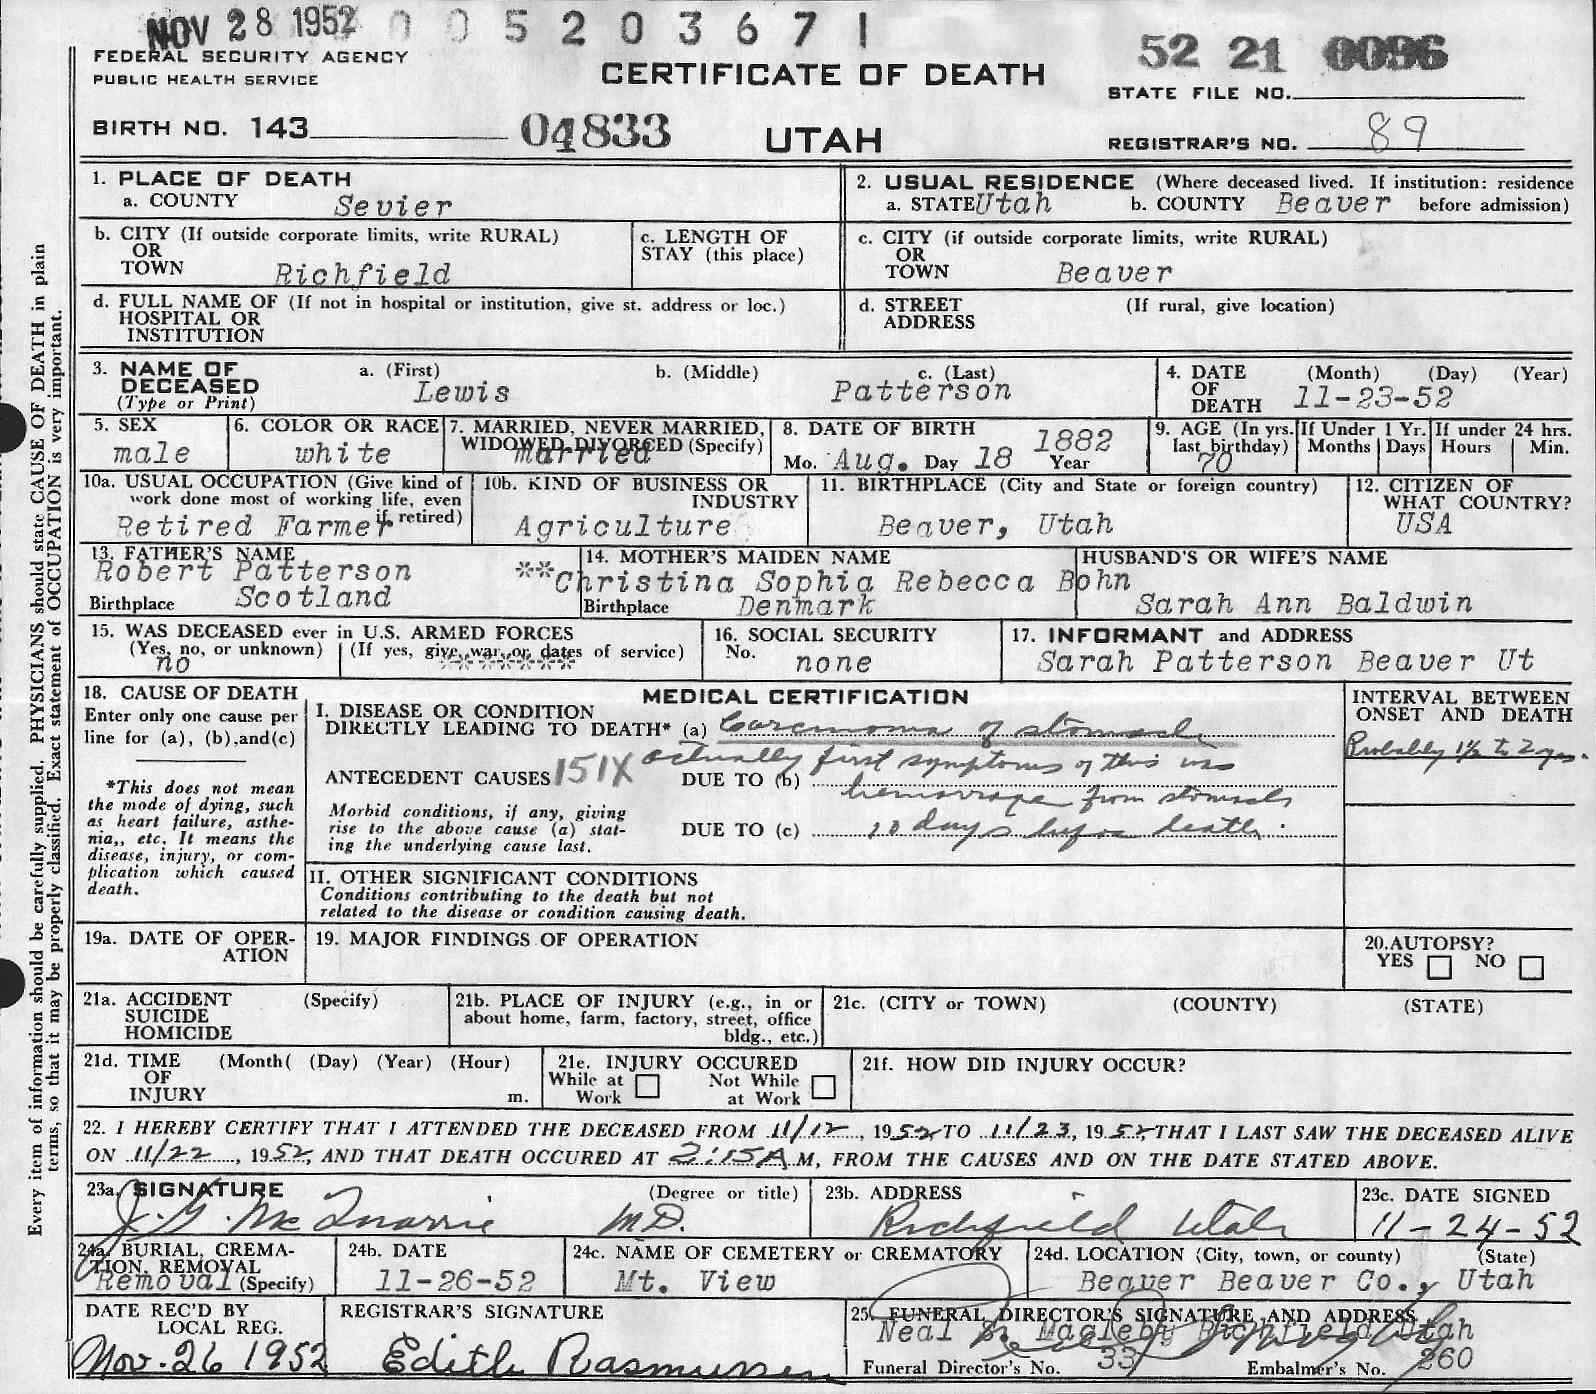 NOV 28 1952 0 0 5 2 0 3 6 7 1
FEDERAL SECURITY AGENCY
PUBLIC HEALTH SERVICE
CERTIFICATE OF DEATH
52 21 0096
STATE FILE NO.
BIRTH NO. 143 04833 UTAH
REGISTRAR'S NO. 89
Every item of information should be carefully supplied. PHYSICIANS should state CAUSE OF DEATH in plain
terms, so that it may be properly classified. Exact statement of OCCUPATION is very important.
1. PLACE OF DEATH
a. COUNTY Sevier
2. USUAL RESIDENCE (Where deceased lived. If institution: residence
a. STATE Utah b. COUNTY Beaver before admission)
b. CITY (If outside corporate limits, write RURAL)
OR
TOWN Richfield
c. LENGTH OF
STAY (this place)
c. CITY (if outside corporate limits, write RURAL)
OR
TOWN Beaver
d. FULL NAME OF (If not in hospital or institution, give st. address or loc.)
HOSPITAL OR
INSTITUTION
d. STREET (If rural, give location)
ADDRESS
3. NAME OF
DECEASED
(Type or Print)
a. (First) b. (Middle) c. (Last)
Lewis Patterson
4. DATE (Month) (Day) (Year)
OF
DEATH 11-23-52
5. SEX
male
6. COLOR OR RACE
white
7. MARRIED, NEVER MARRIED,
WIDOWED DIVORCED (Specify)
married
8. DATE OF BIRTH 1882
Mo. Aug. Day 18 Year
9. AGE (In yrs.
last birthday)
70
If Under 1 Yr.
Months Days
If under 24 hrs.
Hours Min.
10a. USUAL OCCUPATION (Give kind of
work done most of working life, even
if retired)
Retired Farmer
10b. KIND OF BUSINESS OR
INDUSTRY
Agriculture
11. BIRTHPLACE (City and State or foreign country)
Beaver, Utah
12. CITIZEN OF
WHAT COUNTRY?
USA
13. FATHER'S NAME
Robert Patterson
Birthplace Scotland
14. MOTHER'S MAIDEN NAME
**Christina Sophia Rebecca Bohn
Birthplace Denmark
HUSBAND'S OR WIFE'S NAME
Sarah Ann Baldwin
15. WAS DECEASED ever in U.S. ARMED FORCES
(Yes, no, or unknown) (If yes, give war or dates of service)
no *******
16. SOCIAL SECURITY
No. none
17. INFORMANT and ADDRESS
Sarah Patterson Beaver Ut
18. CAUSE OF DEATH
Enter only one cause per
line for (a), (b),and(c)
*This does not mean
the mode of dying, such
as heart failure, asthe-
nia,, etc. It means the
disease, injury, or com-
plication which caused
death.
MEDICAL CERTIFICATION
I. DISEASE OR CONDITION
DIRECTLY LEADING TO DEATH* (a) Carcinoma of stomach
actually first symptoms of this was
ANTECEDENT CAUSES 151X DUE TO (b)
hemorrage from stomach
Morbid conditions, if any, giving
rise to the above cause (a) stat-
ing the underlying cause last.
DUE TO (c) 10 days before death.
INTERVAL BETWEEN
ONSET AND DEATH
Probably 1½ to 2 yrs.
II. OTHER SIGNIFICANT CONDITIONS
Conditions contributing to the death but not
related to the disease or condition causing death.
19a. DATE OF OPER-
ATION
19. MAJOR FINDINGS OF OPERATION
20. AUTOPSY?
YES NO
21a. ACCIDENT (Specify)
SUICIDE
HOMICIDE
21b. PLACE OF INJURY (e.g., in or
about home, farm, factory, street, office
bldg., etc.)
21c. (CITY or TOWN) (COUNTY) (STATE)
21d. TIME (Month( (Day) (Year) (Hour)
OF
INJURY m.
21e. INJURY OCCURED
While at Not While
Work at Work
21f. HOW DID INJURY OCCUR?
22. I HEREBY CERTIFY THAT I ATTENDED THE DECEASED FROM 11/12, 1952 TO 11/23, 1952, THAT I LAST SAW THE DECEASED ALIVE
ON 11/22, 1952, AND THAT DEATH OCCURED AT 2:15A M, FROM THE CAUSES AND ON THE DATE STATED ABOVE.
23a. SIGNATURE (Degree or title)
J. G. McQuarrie M.D.
23b. ADDRESS
Richfield Utah
23c. DATE SIGNED
11-24-52
24a. BURIAL, CREMA-
TION, REMOVAL
Removal (Specify)
24b. DATE
11-26-52
24c. NAME OF CEMETERY or CREMATORY
Mt. View
24d. LOCATION (City, town, or county) (State)
Beaver Beaver Co., Utah
DATE REC'D BY
LOCAL REG.
Nov. 26 1952
REGISTRAR'S SIGNATURE
Edith Rasmussen
25. FUNERAL DIRECTOR'S SIGNATURE AND ADDRESS
Neal S. Magleby Richfield Utah
Funeral Director's No. 33 Embalmer's No. 260